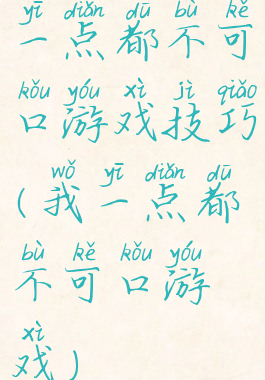 yī diǎn dū bù kě
一点都不可
kǒu yóu xì jì qiǎo
口游戏技巧
wǒ yī diǎn dū
(我一点都
bù kě kǒu yóu
不可口游
xì
戏)